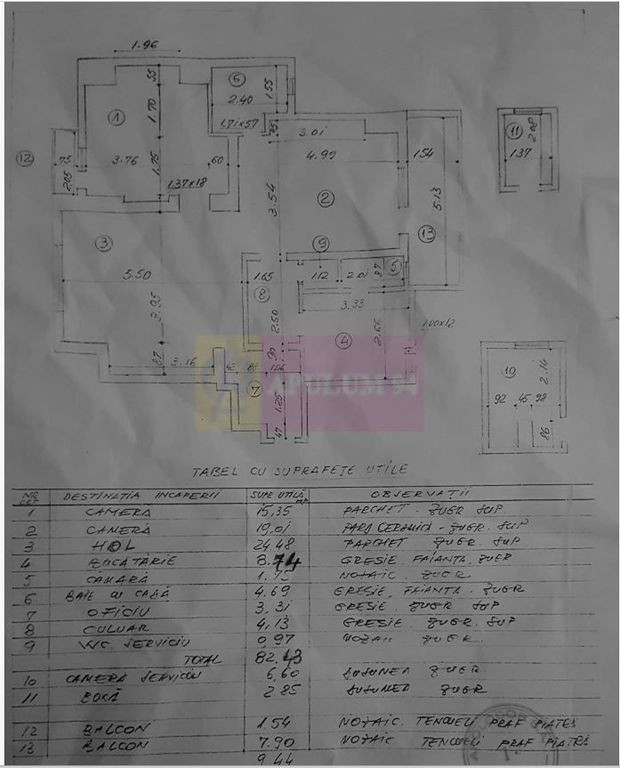 1.96
55
6
1.55
2.40
1.71x57
1
1.70
3.76
1.76
60
137x18
12
75
205
3.01
4.99
154
11
137
2.08
3.54
2
5.13
13
3
9
5.50
165
112
2.01
87
5
8
3.33
3.05
2.50
4
2.66
1.00x18
87
3.16
10
2.14
92 45 98
86
7
1.25
47
APULUM 94
TABEL CU SUPRAFEȚE UTILE
NR. CRT. DESTINAȚIA INCAPERII SUPR. UTILĂ MP OBSERVAȚII
1 CAMERA 15,35 PARCHET - ZUGR SUP.
2 CAMERA 19,01 PARD CERAMICA - ZUGR. SUP
3 HOL 24,48 PARCHET ZUGR. SUP
4 BUCĂTĂRIE 8.74 GRESIE, FAIANTA, ZUGR
5 CĂMARĂ MOZAIC ZUGR
6 BAIE CU CADĂ 4.69 GRESIE, FAIANTA, ZUGR
7 OFICIU 3,31 GRESIE, ZUGR SUP
8 CULUAR 4,13 GRESIE, ZUGR. SUP
9 WC. SERVICIU 0,97 MOZAIC ZUGR.
TOTAL 82,43
10 CAMERA SERVICIU 6,60 DUȘUMEA ZUGR
11 BOXĂ 2.85 DUȘUMEA ZUGR
12 BALCON 1.54 MOZAIC. TENCUELI PRAF PIATRĂ
13 BALCON 7.90 MOZAIC TENCUELI PRAF PIATRĂ
9 44